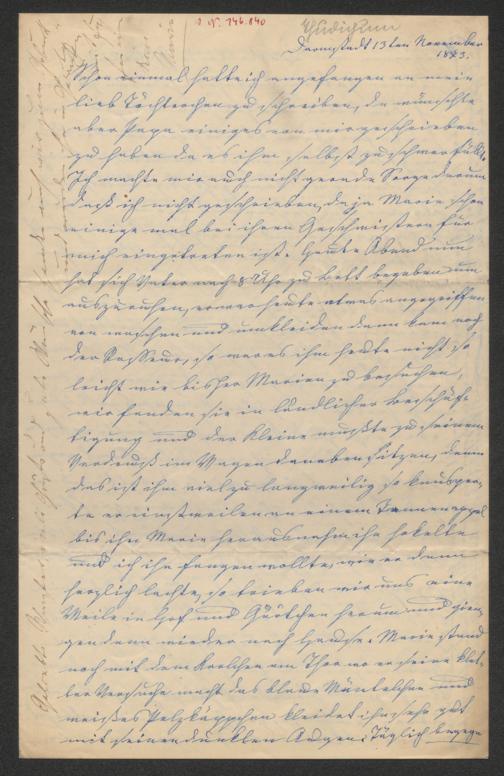 I Nr. 146.840
Thudichum
Darmstadt 13ten November
1883.
Schon einmal hatte ich angefangen an mein
lieb Töchterchen zu schreiben, da wünschte
aber Papa einiges von mir geschrieben
zu haben da es ihm selbst zu schwer fällt,
Ich machte mir auch nicht gerade Sorge darum
daß ich nicht geschrieben, da ja Marie schon
einige mal bei ihren Geschwistern für
mich eingetreten ist. Heute Abend nun
hat sich Vater nach 8 Uhr zu Bett begeben um
auszuruhen, er war heute etwas angegriffen
von waschen und umkleiden dann kam noch
der Masseur, so war es ihm heute nicht so
leicht wie bisher Marien zu besuchen,
wir fanden sie in ländlicher Beschäf-
tigung und der Kleine mußte zu seinem
Verdruß im Wagen daneben sitzen, denn
das ist ihm viel zu langweilig so knusper-
te er einstweilen an einem Tannenappel
bis ihn Marie heraus nahm ihn hokelte
und ich ihn fangen wollte, wie er dann
herzlich lachte, so trieben wir uns eine
Weile in Hof und Gärtchen herum und gin-
gen dann wieder nach Hause. Marie stand
noch mit dem Karlchen am Thor wo er seine Klet-
ter Versuche macht das blaue Mäntelchen und
weißes Pelzkäppchen kleidet ihn sehr gut
mit seinen dunklen Augen. Täglich begeg-